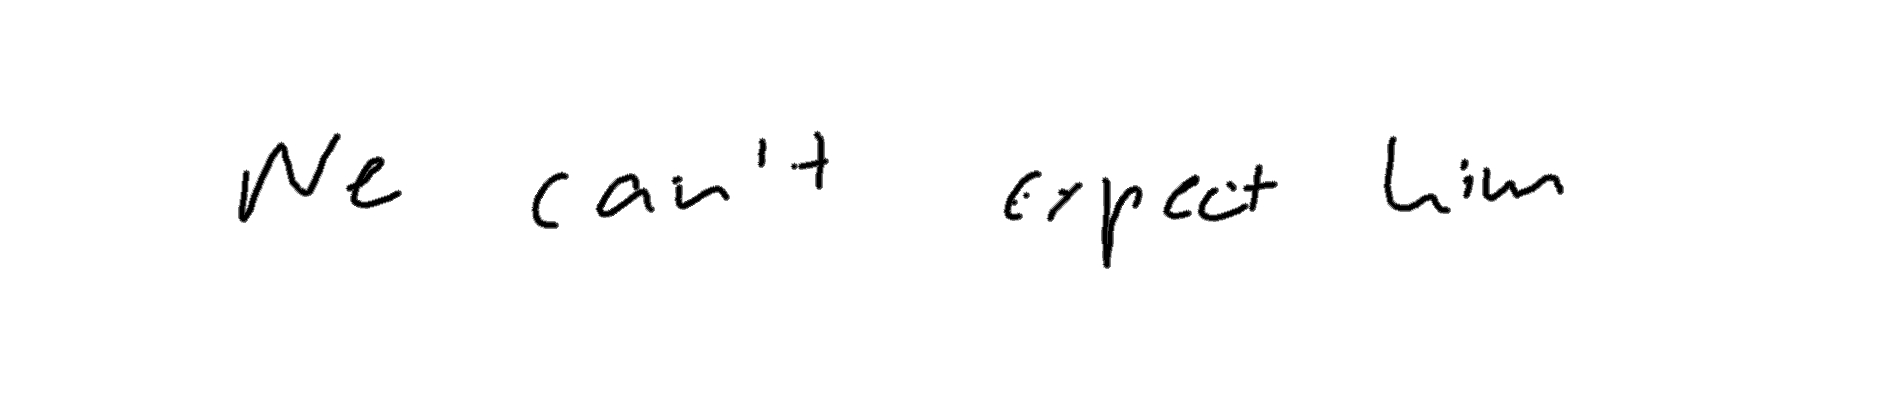 We can't expect him